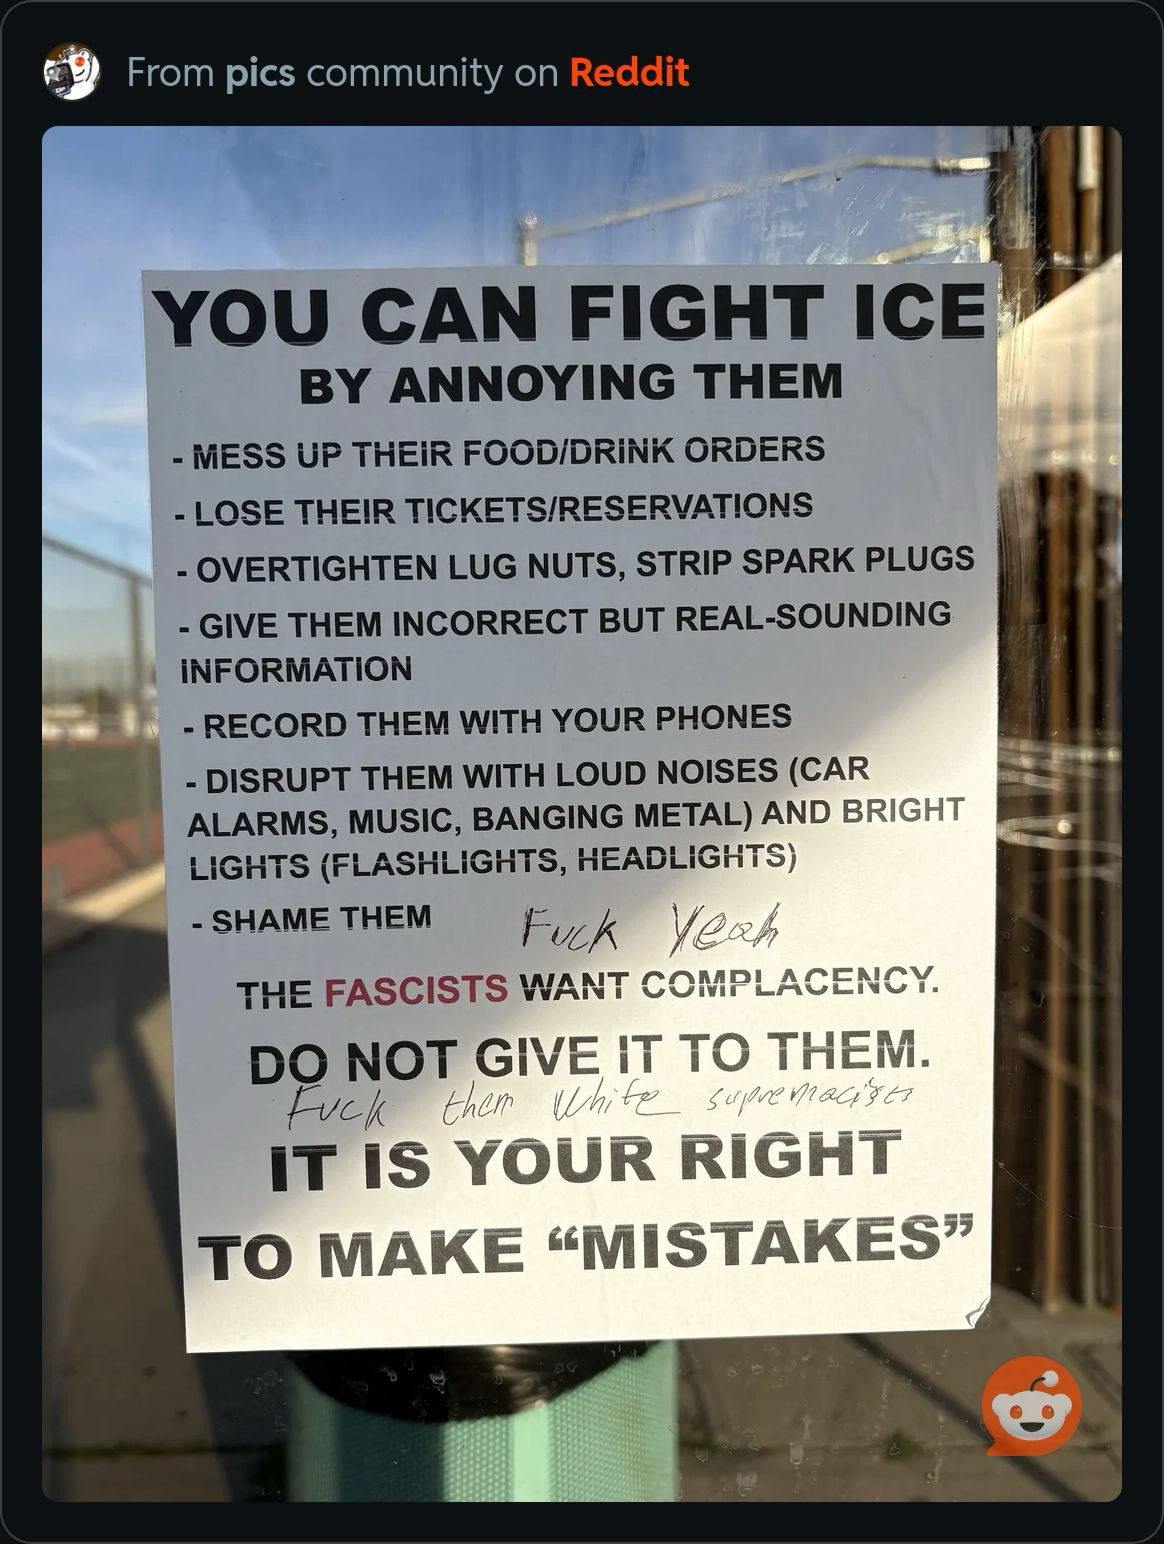 From pics community on Reddit
YOU CAN FIGHT ICE
BY ANNOYING THEM
- MESS UP THEIR FOOD/DRINK ORDERS
- LOSE THEIR TICKETS/RESERVATIONS
- OVERTIGHTEN LUG NUTS, STRIP SPARK PLUGS
- GIVE THEM INCORRECT BUT REAL-SOUNDING
INFORMATION
- RECORD THEM WITH YOUR PHONES
- DISRUPT THEM WITH LOUD NOISES (CAR
ALARMS, MUSIC, BANGING METAL) AND BRIGHT
LIGHTS (FLASHLIGHTS, HEADLIGHTS)
- SHAME THEM Fuck Yeah
THE FASCISTS WANT COMPLACENCY.
DO NOT GIVE IT TO THEM.
Fuck them White supremacists
IT IS YOUR RIGHT
TO MAKE “MISTAKES”